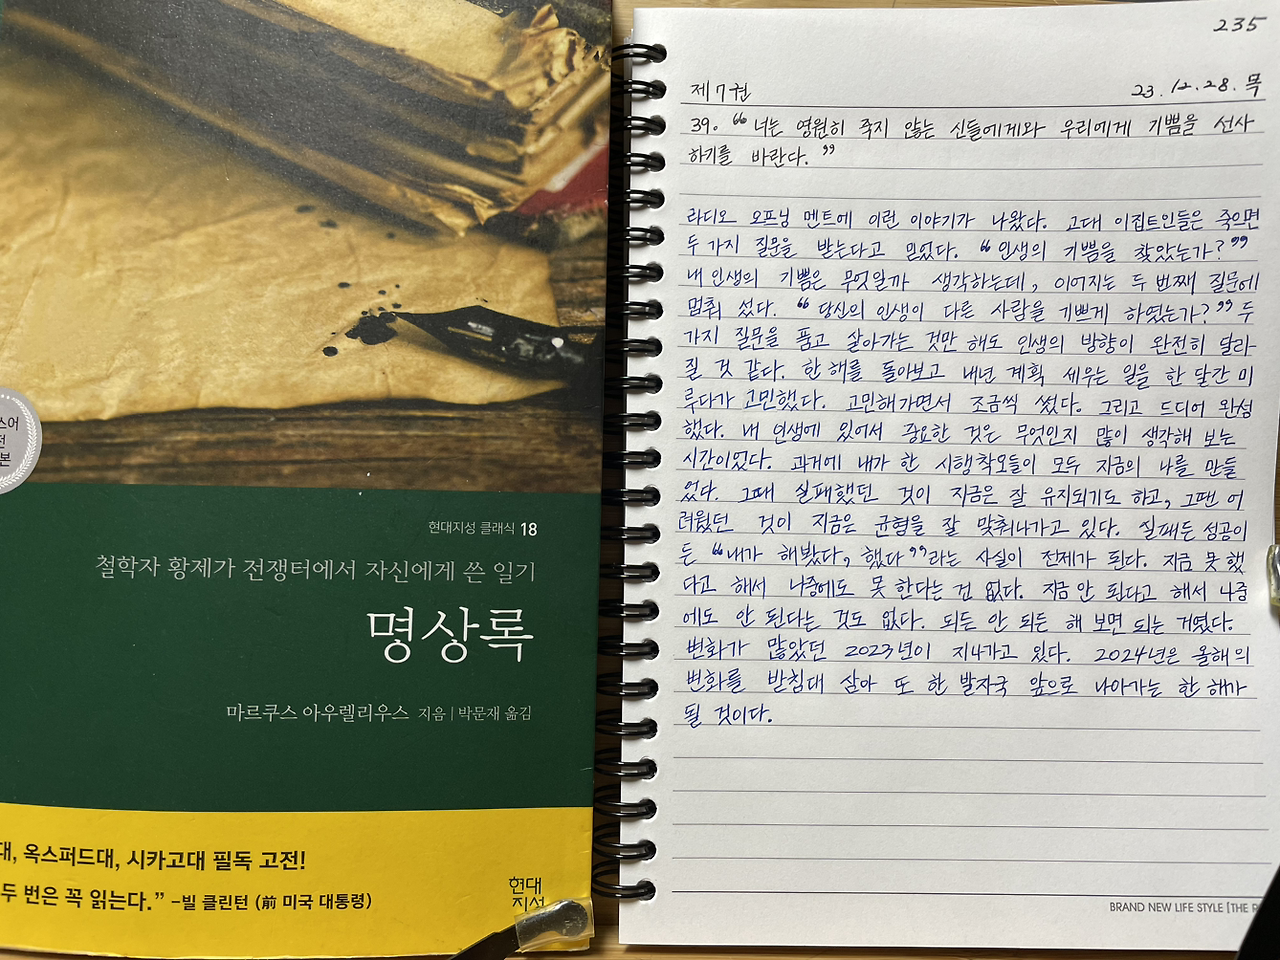 스어
전
본
현대지성 클래식 18
철학자 황제가 전쟁터에서 자신에게 쓴 일기
명상록
마르쿠스 아우렐리우스 지음 | 박문재 옮김
대, 옥스퍼드대, 시카고대 필독 고전!
두 번은 꼭 읽는다.” -빌 클린턴 (前 미국 대통령)
현대
지성
235
제 7권 23. 12. 28. 목
39. “너는 영원히 죽지 않는 신들에게와 우리에게 기쁨을 선사
하기를 바란다.”
라디오 오프닝 멘트에 이런 이야기가 나왔다. 고대 이집트인들은 죽으면
두 가지 질문을 받는다고 믿었다. “인생의 기쁨을 찾았는가?”
내 인생의 기쁨은 무엇일까 생각하는데, 이어지는 두 번째 질문에
멈춰 섰다. “당신의 인생이 다른 사람을 기쁘게 하였는가?” 두
가지 질문을 품고 살아가는 것만 해도 인생의 방향이 완전히 달라
질 것 같다. 한 해를 돌아보고 내년 계획 세우는 일을 한 달간 미
루다가 고민했다. 고민해가면서 조금씩 썼다. 그리고 드디어 완성
했다. 내 인생에 있어서 중요한 것은 무엇인지 많이 생각해 보는
시간이었다. 과거에 내가 한 시행착오들이 모두 지금의 나를 만들
었다. 그때 실패했던 것이 지금은 잘 유지되기도 하고, 그땐 어
려웠던 것이 지금은 균형을 잘 맞춰나가고 있다. 실패든 성공이
든 “내가 해봤다, 했다”라는 사실이 전제가 된다. 지금 못 했
다고 해서 나중에도 못 한다는 건 없다. 지금 안 된다고 해서 나중
에도 안 된다는 것도 없다. 되든 안 되든 해 보면 되는 거였다.
변화가 많았던 2023년이 지나가고 있다. 2024년은 올해의
변화를 받침대 삼아 또 한 발자국 앞으로 나아가는 한 해가
될 것이다.
BRAND NEW LIFE STYLE [THE